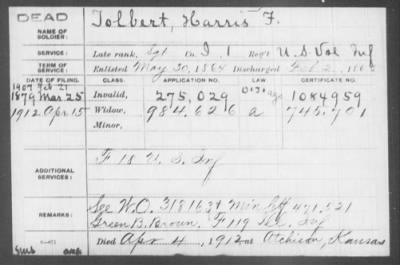 DEAD
NAME OF SOLDIER: Tolbert, Harris F.
SERVICE: Late rank, Sgt Co. I, 1 Reg't U.S. Vol Inf
TERM OF SERVICE: Enlisted May 30, 1864 Discharged
DATE OF FILING. CLASS. APPLICATION NO. LAW CERTIFICATE NO.
1907 Feb 21
1879 Mar 25 Invalid, 275,029 1084959
1912 Apr 15 Widow, 984,626 a 745,701
Minor,
ADDITIONAL SERVICES: F 18 U. S. Inf
REMARKS: See W.O. 318163 471,521
Green B. Brown, F 119 Inf
Died Apr 4, 1912, at Atchison, Kansas